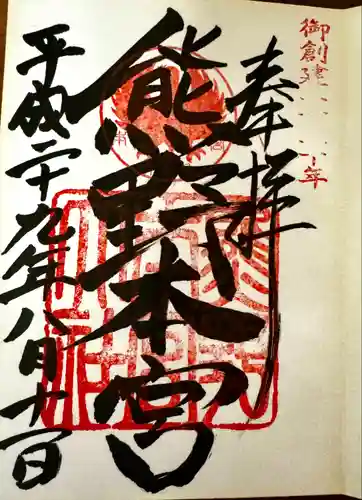 御創建
年
奉拝
熊野本宮
平成二十九年八月十一日